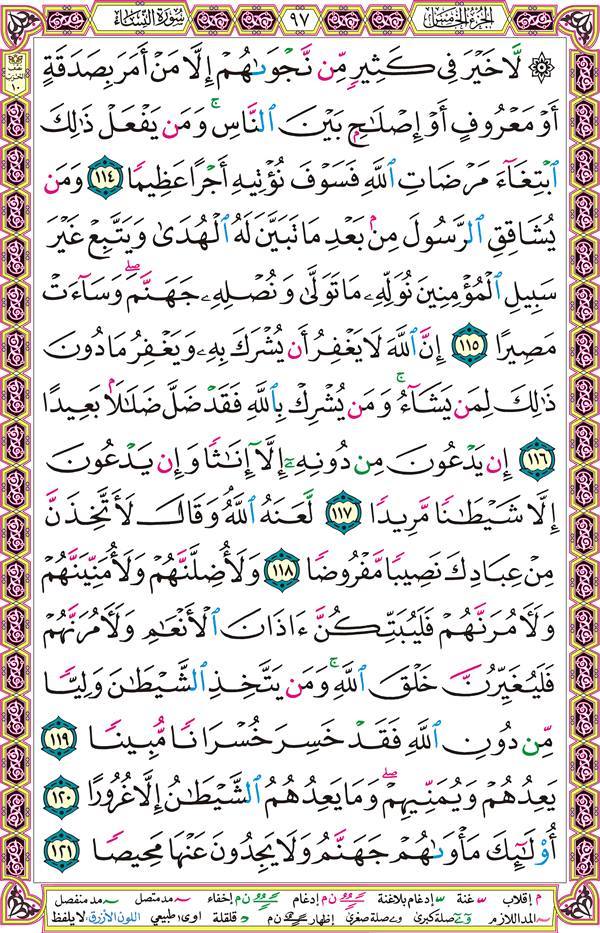 الجزء الخامس
٩٧
سورة النساء
۞ لَّا خَيْرَ فِى كَثِيرٍ مِّن نَّجْوَىٰهُمْ إِلَّا مَنْ أَمَرَ بِصَدَقَةٍ
أَوْ مَعْرُوفٍ أَوْ إِصْلَٰحٍۭ بَيْنَ ٱلنَّاسِ ۚ وَمَن يَفْعَلْ ذَٰلِكَ
ٱبْتِغَآءَ مَرْضَاتِ ٱللَّهِ فَسَوْفَ نُؤْتِيهِ أَجْرًا عَظِيمًا ١١٤ وَمَن
يُشَاقِقِ ٱلرَّسُولَ مِنۢ بَعْدِ مَا تَبَيَّنَ لَهُ ٱلْهُدَىٰ وَيَتَّبِعْ غَيْرَ
سَبِيلِ ٱلْمُؤْمِنِينَ نُوَلِّهِۦ مَا تَوَلَّىٰ وَنُصْلِهِۦ جَهَنَّمَ ۖ وَسَآءَتْ
مَصِيرًا ١١٥ إِنَّ ٱللَّهَ لَا يَغْفِرُ أَن يُشْرَكَ بِهِۦ وَيَغْفِرُ مَا دُونَ
ذَٰلِكَ لِمَن يَشَآءُ ۚ وَمَن يُشْرِكْ بِٱللَّهِ فَقَدْ ضَلَّ ضَلَٰلًۢا بَعِيدًا
١١٦ إِن يَدْعُونَ مِن دُونِهِۦٓ إِلَّآ إِنَٰثًا وَإِن يَدْعُونَ
إِلَّا شَيْطَٰنًا مَّرِيدًا ١١٧ لَّعَنَهُ ٱللَّهُ وَقَالَ لَأَتَّخِذَنَّ
مِنْ عِبَادِكَ نَصِيبًا مَّفْرُوضًا ١١٨ وَلَأُضِلَّنَّهُمْ وَلَأُمَنِّيَنَّهُمْ
وَلَءَامُرَنَّهُمْ فَلَيُبَتِّكُنَّ ءَاذَانَ ٱلْأَنْعَٰمِ وَلَءَامُرَنَّهُمْ
فَلَيُغَيِّرُنَّ خَلْقَ ٱللَّهِ ۚ وَمَن يَتَّخِذِ ٱلشَّيْطَٰنَ وَلِيًّا
مِّن دُونِ ٱللَّهِ فَقَدْ خَسِرَ خُسْرَانًا مُّبِينًا ١١٩
يَعِدُهُمْ وَيُمَنِّيهِمْ ۖ وَمَا يَعِدُهُمُ ٱلشَّيْطَٰنُ إِلَّا غُرُورًا ١٢٠
أُو۟لَٰٓئِكَ مَأْوَىٰهُمْ جَهَنَّمُ وَلَا يَجِدُونَ عَنْهَا مَحِيصًا ١٢١
م إقلاب غنة إدغام بلاغنة ن م إدغام ن م إخفاء مد متصل مد منفصل
المد اللازم صلة كبرى صلة صغرى إظهار ن م قلقلة اوى؛ طبيعي اللون الأزرق: لا يلفظ